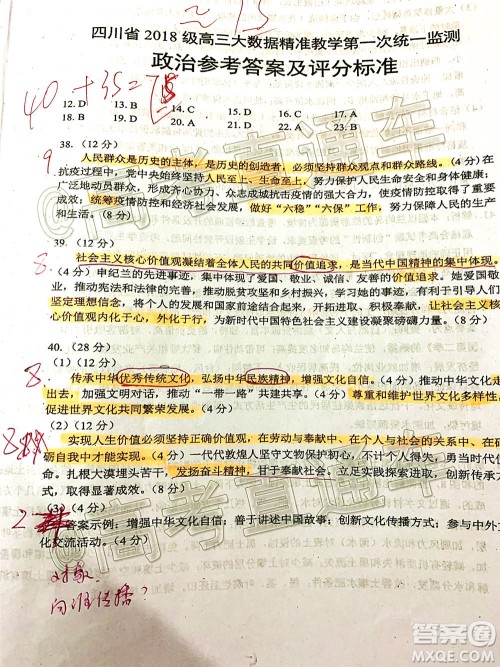 四川省2018级高三大数据精准教学第一次统一监测
政治参考答案及评分标准
40+35=75
12.D 13.B 14.C 15.
18.D 19.B 20.A 21.
22.A 23.B
38.(12分)
9
人民群众是历史的主体，是历史的创造者，必须坚持群众观点和群众路线。(4分)在
抗疫过程中，党中央始终坚持人民至上、生命至上，努力保护人民生命安全和身体健康；
广泛地动员群众、组织群众、凝聚群众，齐心协力、众志成城抗击疫情，使疫情防控取得了重要
成效；统筹疫情防控和经济社会发展，做好“六稳”“六保”工作，努力保障人民的生产
和生活。(8分)
39.(12分)
8.
社会主义核心价值观凝结着全体人民的共同价值追求，是当代中国精神的集中体现。
(4分)申纪兰的先进事迹，集中体现了爱国、敬业、诚信、友善的价值追求。她爱国爱
推动宪法和法律的完善，推动脱贫攻坚和乡村振兴，学习她的事迹，有利于引导人们
坚定理想信念，将爱国、敬业、诚信、友善作为自己的价值追求，让社会主义核
心价值观内化于心，外化于行，为中国特色社会主义建设凝聚磅礴力量。(8分)
40.(28分)
(1)(12分)
8.
传承中华优秀传统文化，弘扬中华民族精神，增强文化自信。(4分)推动中华文化走
出去，加强文明对话，推动“一带一路”共建共享。(4分)尊重和维护世界文化多样性，
促进世界文化共同繁荣发展。(4分)
(2)(12分)
8
实现人生价值必须坚持正确价值观，在劳动与奉献中、在个人与社会的关系中、在砥
砺自我中才能实现。(4分)一代代敦煌人坚守文物保护初心，不计个人得失，勇
当。扎根大漠埋头苦干，发扬奋斗精神，甘于奉献社会。立足实际探索创新，
用，取得显著成效。(8分)
(3)(4分)
2
答案示例：增强中华文化自信；善于讲述中国故事；创新文化传播方式；参与中外文
化交流活动。(4分)
对象
向谁传播？
高考直通车
@高考直通车
答案圈
MXQE.COM